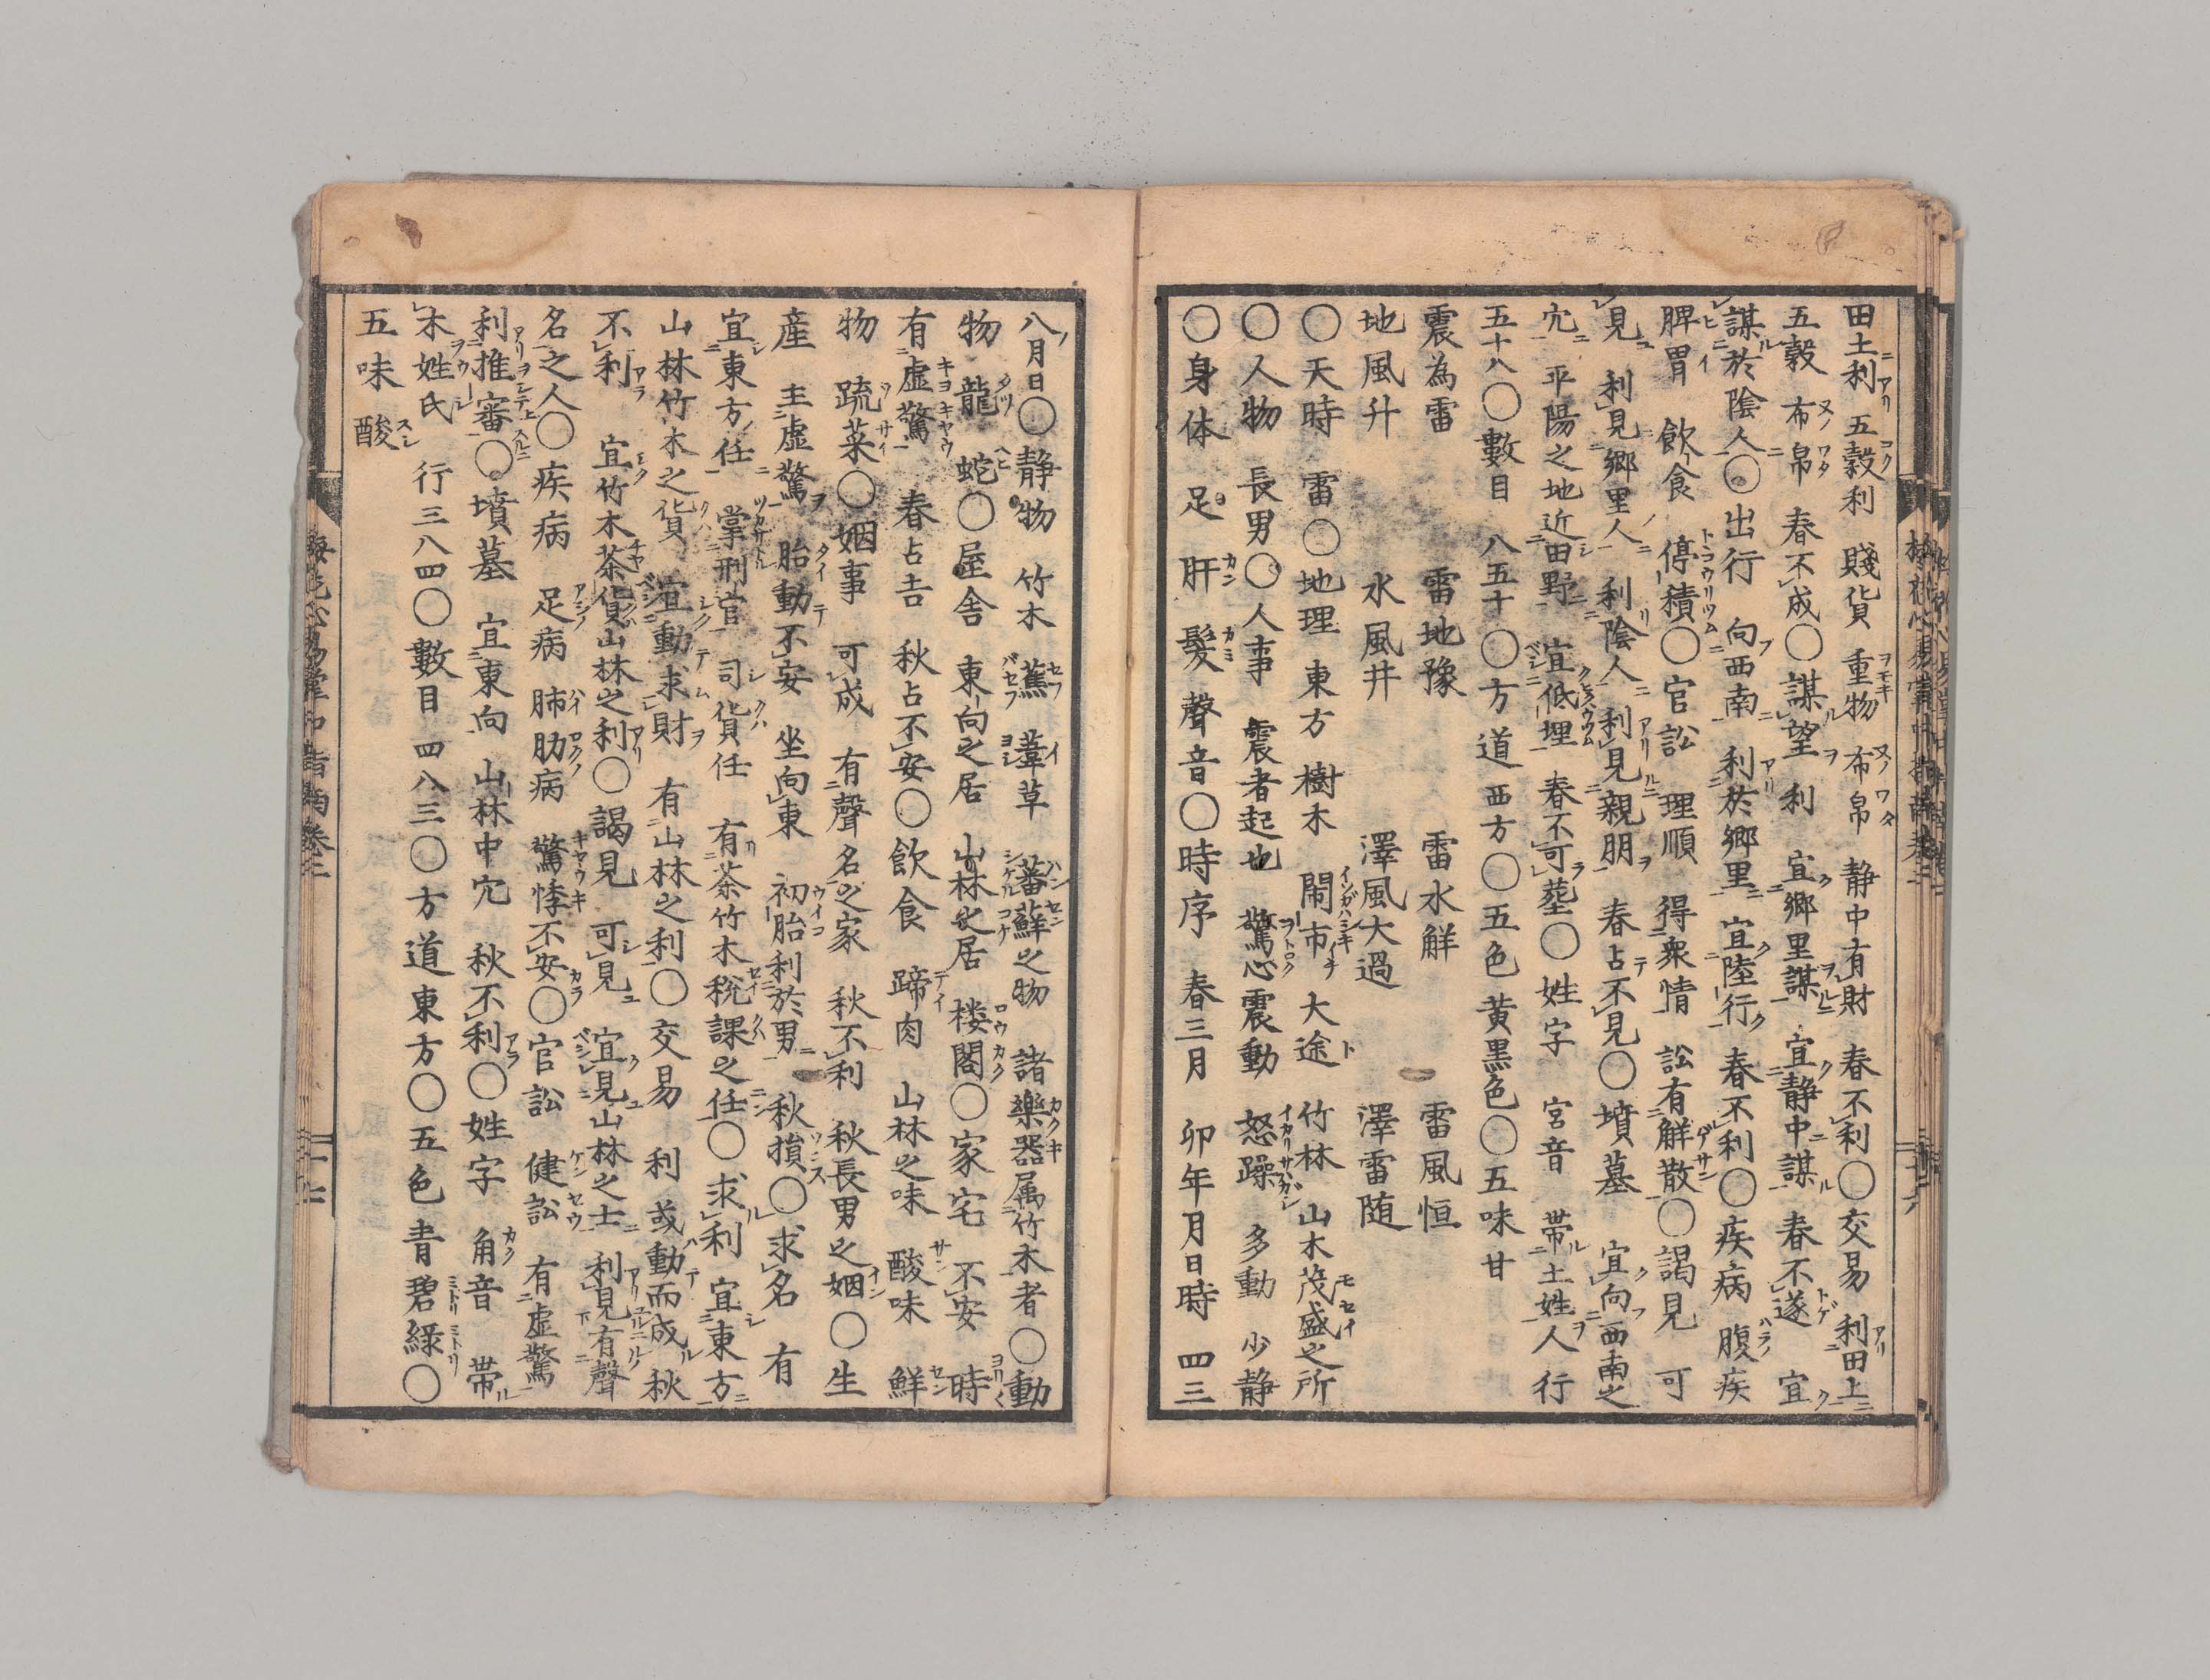 田土利 五穀利 賤貨 重物 布帛 静中有財 春不利〇交易 利田土
五穀 布帛 春不成〇謀望 利 宜郷里謀 宜静中謀 春不遂 宜
謀於陰人〇出行 向西南 利於郷里 宜陸行 春不利〇疾病 腹疾
脾胃 飲食 停積〇官訟 理順 得衆情 訟有解散〇謁見 可
見 利見郷里人 利陰人 利見親朋 春占不見〇墳墓 宜向西南之
穴 平陽之地近田野 宜低埋 春不可葬〇姓字 宮音 帯土姓人 行
五十八〇數目 八五十〇方道西方〇五色黄黒色〇五味甘
震為雷 雷地豫 雷水解 雷風恒
地風升 水風井 澤風大過 澤雷随
〇天時 雷〇地理 東方 樹木 閙市 大途 竹林 山木茂盛之所
〇人物 長男〇人事 震者起也 驚心震動 怒躁 多動 少静
〇身体 足 肝 髮 聲音〇時序 春三月 卯年月日時 四三
八月日〇静物 竹木 蕉 葦草 蕃蘇之物 諸樂器属竹木者〇動
物 龍 蛇〇屋舎 東向之居 山林之居 楼閣〇家宅 不安 時
有虚驚 春占吉 秋占不安〇飲食 蹄肉 山林之味 酸味 鮮
物 蔬菜〇姻事 可成 有聲名之家 秋不利 秋長男之姻〇生
産 主虚驚 胎動不安 坐向東 初胎利於男 秋損〇求名 有
宜東方任 掌刑官 司貨任 有茶竹木税課之任〇求利 宜東方
山林竹木之貨 宜動求財 有山林之利〇交易 利 或動而成 秋
不利 宜竹木茶貨山林之利〇謁見 可見 宜見山林之士 利見有聲
名之人〇疾病 足病 肺肋病 驚悸不安〇官訟 健訟 有虚驚
利推審〇墳墓 宜東向 山林中穴 秋不利〇姓字 角音 帯
木姓氏 行三八四〇數目四八三〇方道東方〇五色青碧緑〇
五味 酸